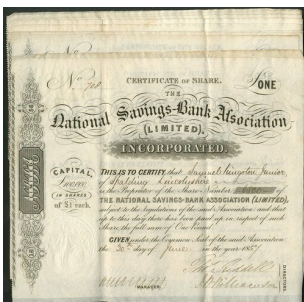 CERTIFICATE OF SHARE.
£ONE
THE
National Savings-Bank Association
(LIMITED),
INCORPORATED.
CAPITAL,
IN SHARES
OF £1 EACH.
THIS IS TO CERTIFY, that Samuel Kingston Junior
of Spalding Lincolnshire
is the Proprietor of the Share Number
THE NATIONAL SAVINGS-BANK ASSOCIATION (LIMITED),
subject to the Regulations of the said Association and that
up to this day there has been paid up, in respect of such
Share, the full sum of One Pound.
GIVEN under the Common Seal of the said Association
the 30th day of June in the year 185
MANAGER